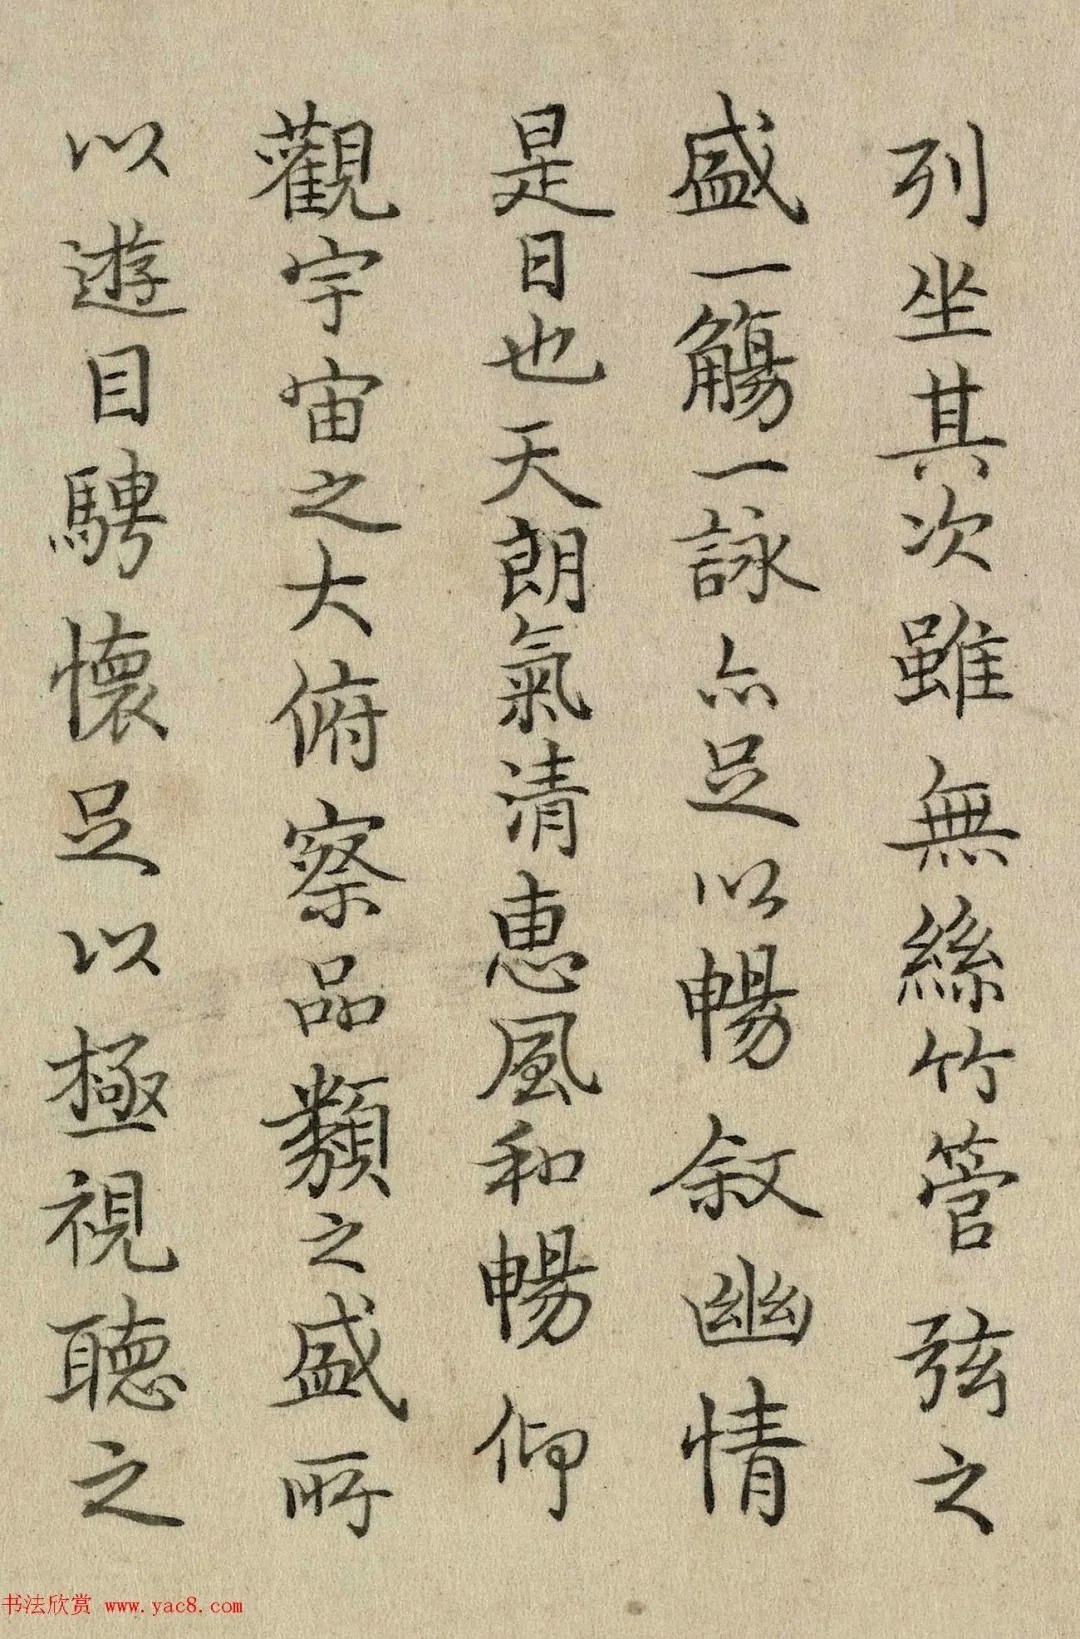 列坐其次雖無絲竹管弦之
盛一觴一詠亦足以暢叙幽情
是日也天朗氣清惠風和暢仰
觀宇宙之大俯察品類之盛所
以遊目騁懷足以極視聽之
书法欣赏 www.yac8.com